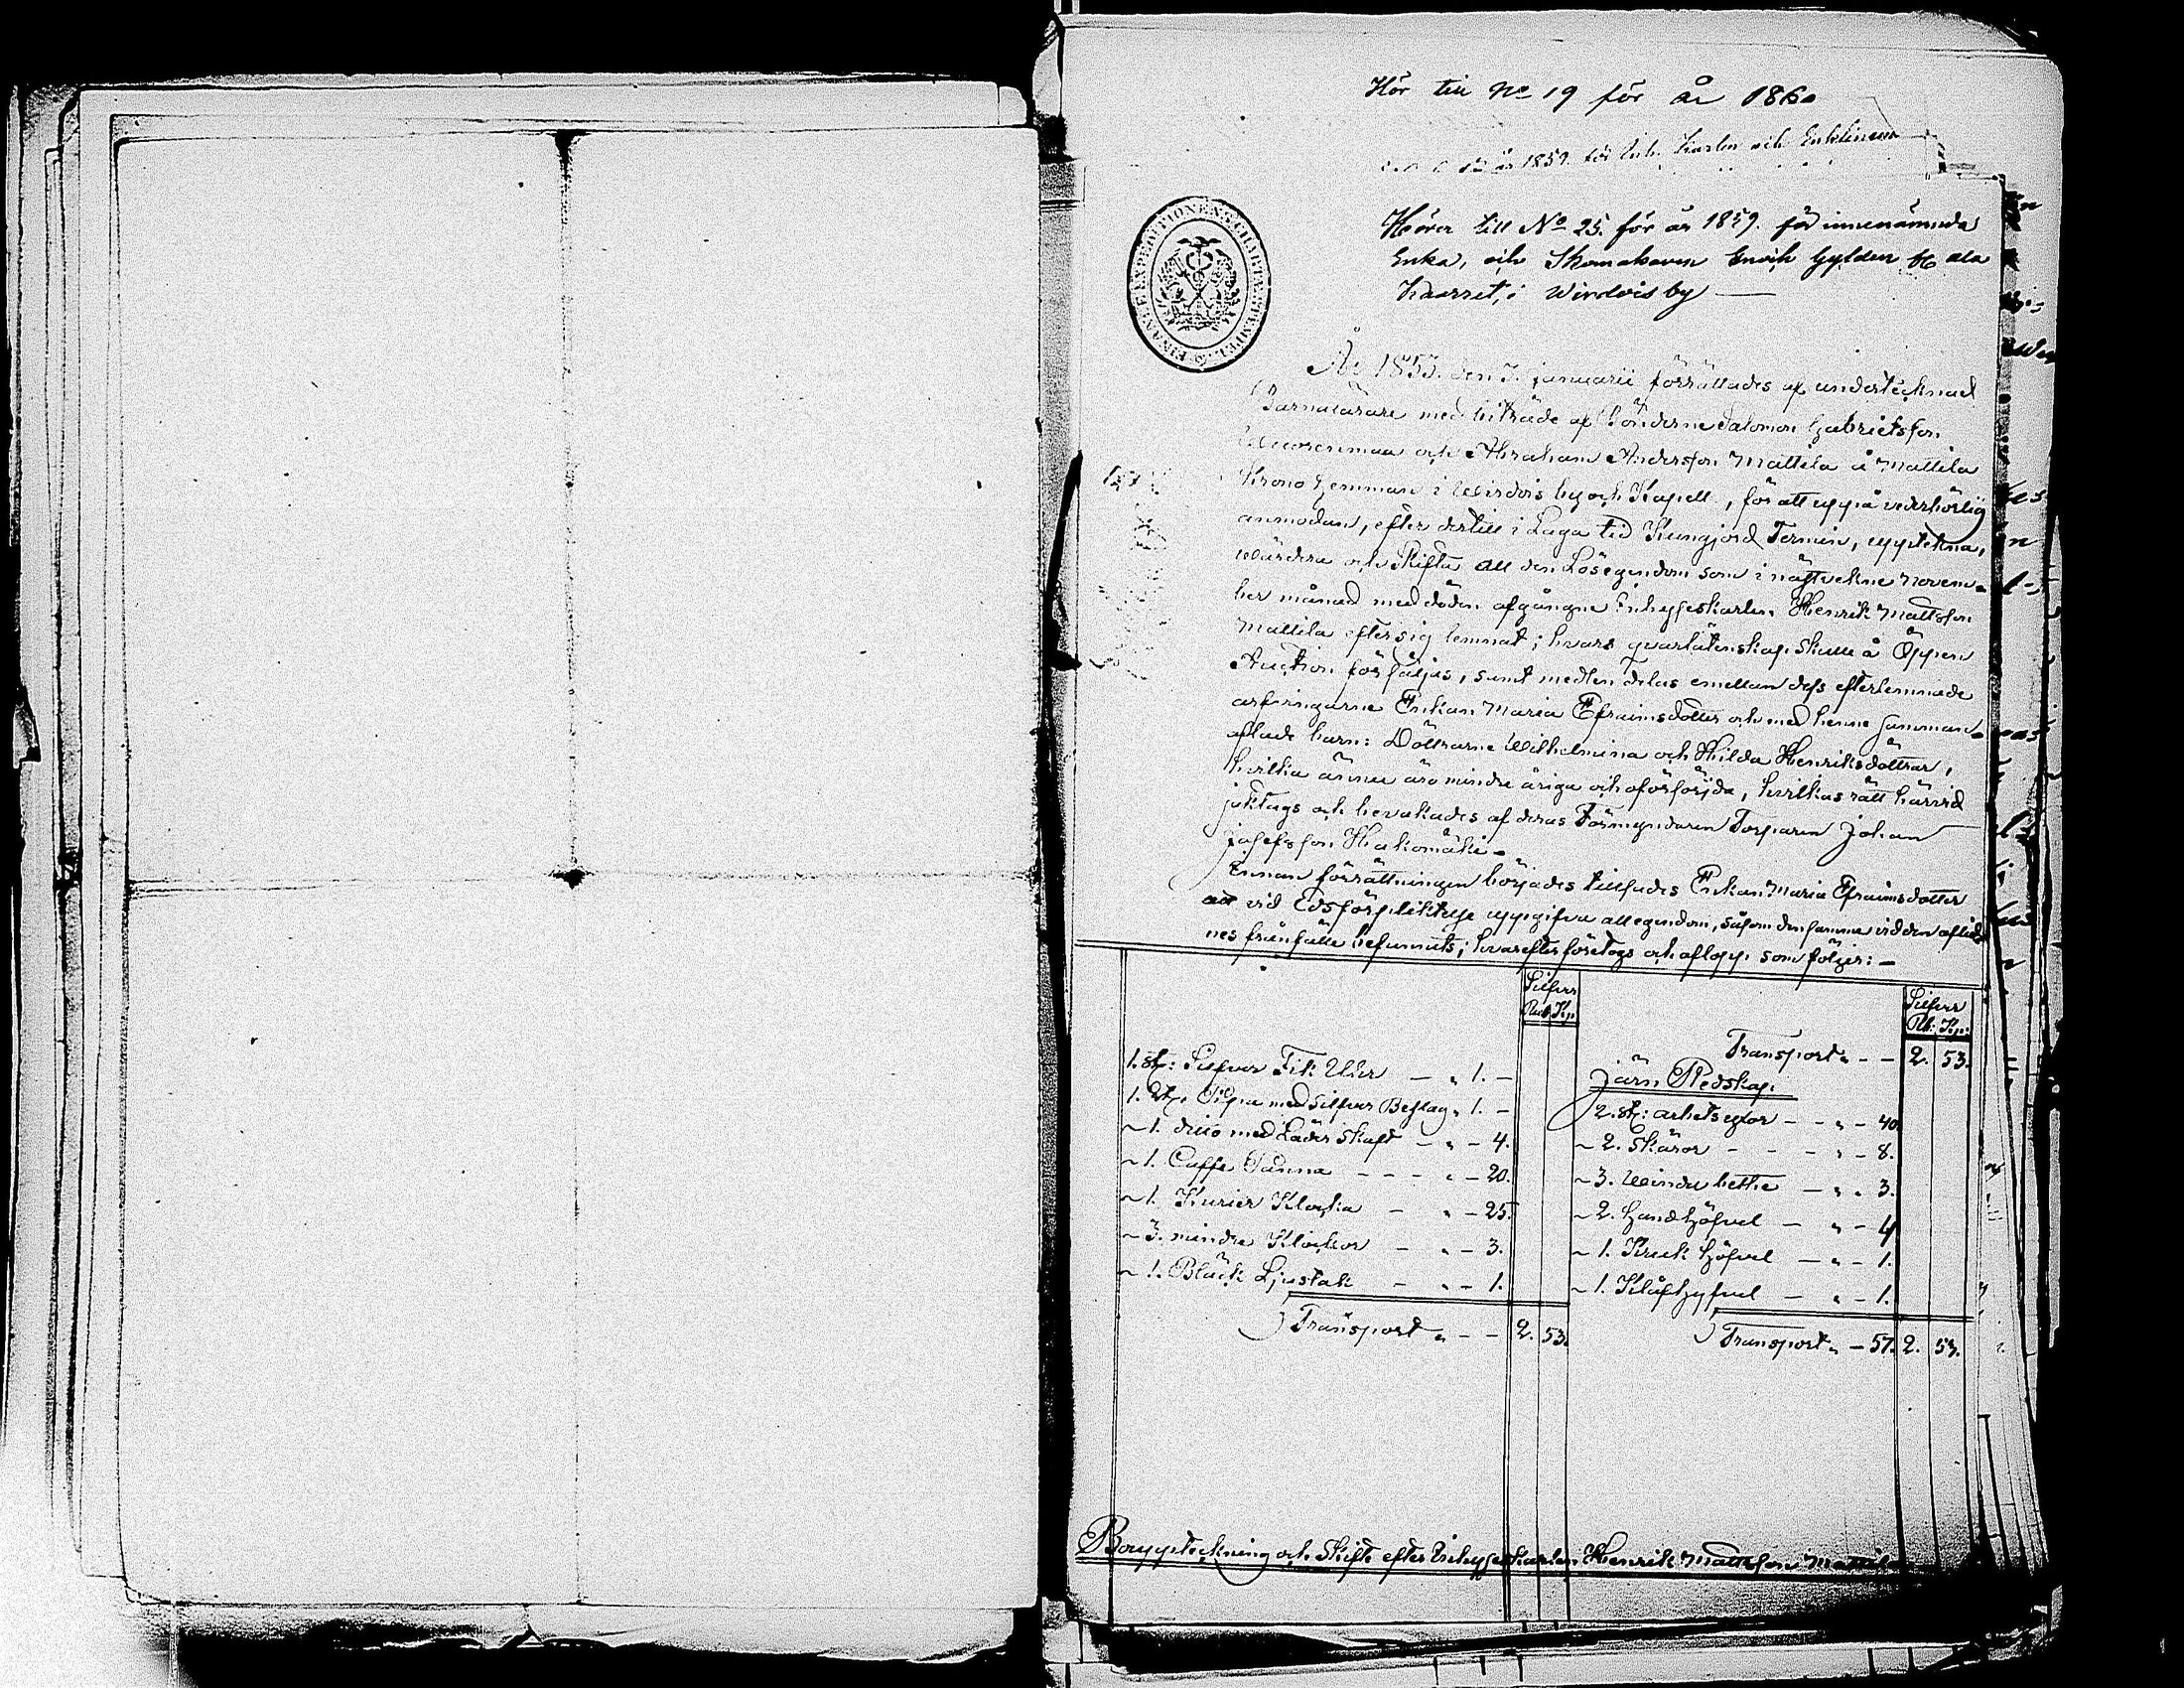 Hör till No 19 för år 1860
år 1859. för Inh. Karlen och Enklingen
FINANS EXPEDITIONENS CHARTÆ STEMPEL
Hörer till No 25. för år 1859. för innenämnde
Enka, och Skomakaren Enoch Gylden
i Wirdois by
År 1853. den 7. januarii förrättades af undertecknad
Barnalärare med biträde af Bönderne Salomon Gabrielsson
och Abraham Andersson Mattila å Mattila
Krono hemman i Wirdois by och Kapell, för att uppå vederbörlig
anmodan, efter dertill i Laga tid Kungjord Termin, upptekna,
värdera och Skifta all den Lösegendom som i nästvekne Novem-
ber månad med döden afgångne Inhyseskarlen Henrik Mattsson
Mattila efter sig lemnat; hvars qvarlåtenskap skulle å Öppen
Auction försäljas, samt medlen delas emellan dess efterlemnade
arfvingarne Enkan Maria Efraimsdotter och med henne samman-
aflade barn: Döttrarne Wilhelmina och Hilda Henriksdöttrar,
hvilka ännu äro mindre åriga och oförsörjda, hvilkas rätt härvid
jakttags och bevakades af deras Förmyndaren Torparen Johan
Josefsson Hakomäki.
Innan förrättningen börjades tillsades Enkan Maria Efraimsdotter
att vid Edsförpliktelse uppgifva all egendom, såsom densamma vid den aflid-
nes frånfälle befunnits; hvarefter företogs och aflopp som följer:-
Silfver
Rub. Kp.
1. st: Silfver Fik Uhr - " 1. -
1. st. Pipa med Silfver Beslag " 1. -
~ 1. ditto med Läder skaft - " - 4.
~ 1. Caffe Panna - - - " - 20.
~ 1. Kurier Klocka - " - 25.
~ 3. mindre Klockor - " - 3.
~ 1. Bläck Ljustak - " - 1.
Transport " - - 2. 53.
Silfver
Rb: Kp:
Transport " - - 2. 53.
Järn Redskap.
2. st: arbetsyxor - - " - 40
~ 2. Skäror - - - " - 8.
~ 3. - " " 3.
~ 2. Handhöfvel - " - 4
~ 1. Kruk höfvel - " - 1.
~ 1. - " - 1.
Transport " - 57. 2. 53.
Bouppteckning och Skifte efter Inhyseskarlen Henrik Mattsson Mattila